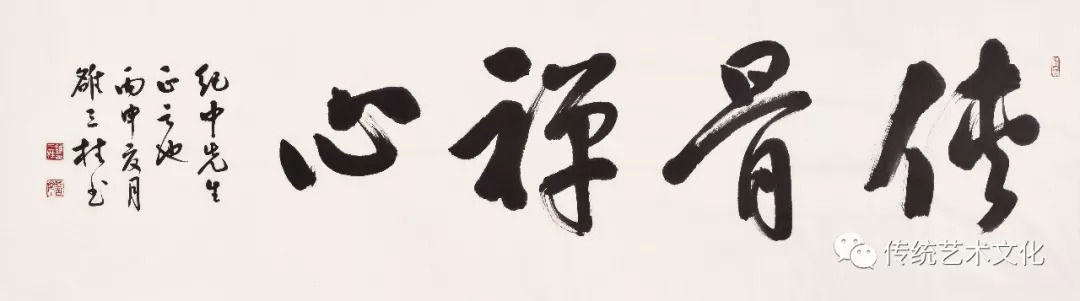 侠骨禅心
纪中先生
正之
丙申夏月
雒三桂书
传统艺术文化